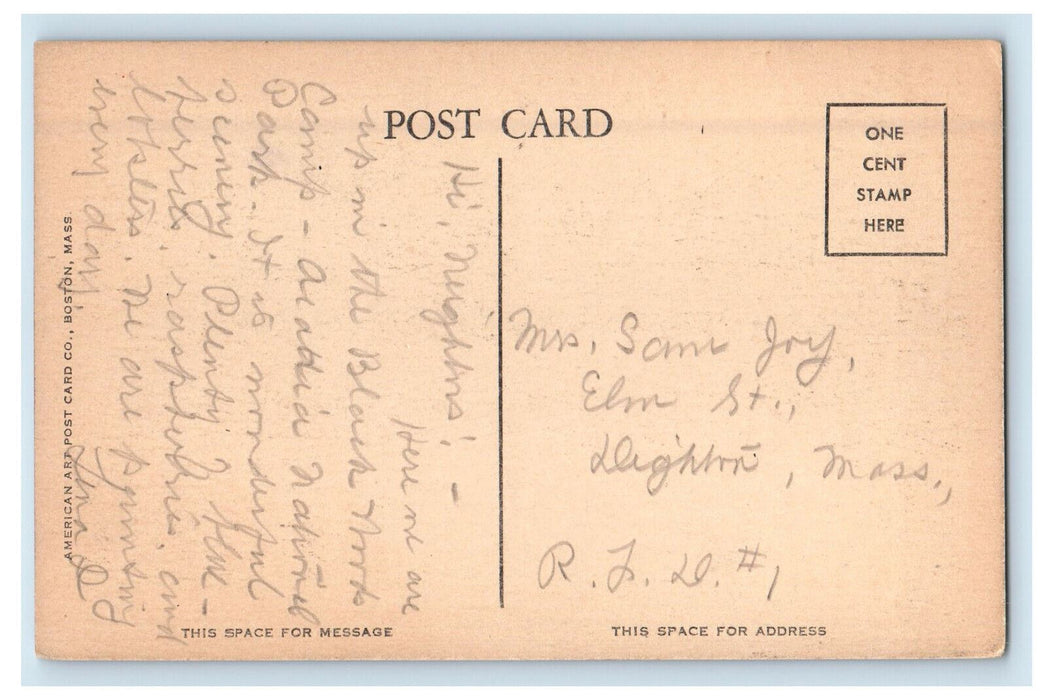 POST CARD
ONE
CENT
STAMP
HERE
Hi, Neighbors! –
Here we are
up in the Black Woods
Camp – Acadia National
Park – It is wonderful
scenery. Plenty blue –
berries, raspberries, and
lobsters. We are painting
every day.
Mrs. Sam Joy,
Elm St.,
Dighton, Mass.,
R. F. D. #1
AMERICAN ART POST CARD CO., BOSTON, MASS.
THIS SPACE FOR MESSAGE
THIS SPACE FOR ADDRESS